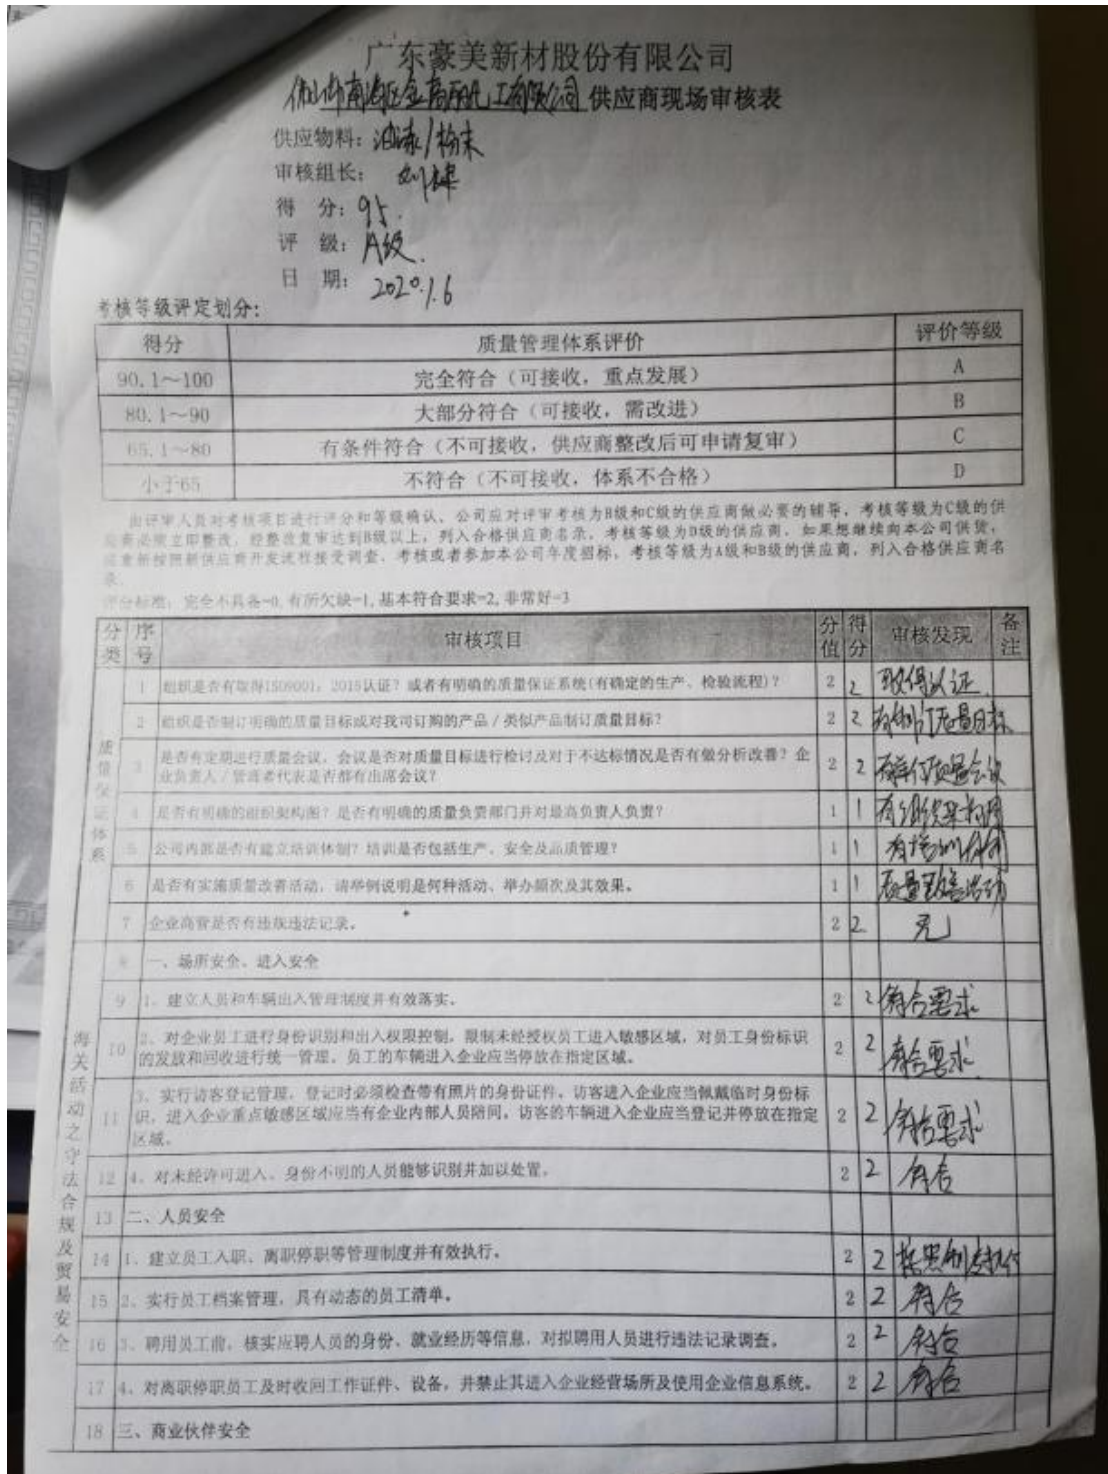 广东豪美新材股份有限公司
佛山市南海区金高丽化工有限公司 供应商现场审核表
供应物料：油漆/粉末
审核组长：
得 分：95.
评 级：A级.
日 期：2020.1.6
考核等级评定划分：
得分 质量管理体系评价 评价等级
90.1～100 完全符合（可接收，重点发展） A
80.1～90 大部分符合（可接收，需改进） B
65.1～80 有条件符合（不可接收，供应商整改后可申请复审） C
小于65 不符合（不可接收，体系不合格） D
由评审人员对考核项目进行评分和等级确认、公司应对评审考核为B级和C级的供应商做必要的辅导，考核等级为C级的供
应商必须立即整改，经整改复审达到B级以上，列入合格供应商名录，考核等级为D级的供应商，如果想继续向本公司供货，
需重新按照新供应商开发流程接受调查、考核或者参加本公司年度招标，考核等级为A级和B级的供应商，列入合格供应商名
录。
评分标准：完全不具备=0,有所欠缺=1,基本符合要求=2,非常好=3
分类 序号 审核项目 分值 得分 审核发现 备注
质量保证体系
1 组织是否有取得ISO9001：2015认证？或者有明确的质量保证系统(有确定的生产、检验流程)？ 2 2 取得认证
2 组织是否制订明确的质量目标或对我司订购的产品/类似产品制订质量目标？ 2 2 有制订质量目标
3 是否有定期进行质量会议，会议是否对质量目标进行检讨及对于不达标情况是否有做分析改善？企
业负责人/管理者代表是否都有出席会议？ 2 2 有举行质量会议
4 是否有明确的组织架构图？是否有明确的质量负责部门并对最高负责人负责？ 1 1 有组织架构图
5 公司内部是否有建立培训体制？培训是否包括生产、安全及品质管理？ 1 1 有培训体制
6 是否有实施质量改善活动，请举例说明是何种活动、举办频次及其效果。 1 1 质量改善活动
7 企业高管是否有违叛违法记录。 2 2 无
海关活动之守法合规及贸易安全
8 一、场所安全、进入安全
9 1、建立人员和车辆出入管理制度并有效落实。 2 2 符合要求
10 2、对企业员工进行身份识别和出入权限控制，限制未经授权员工进入敏感区域，对员工身份标识
的发放和回收进行统一管理，员工的车辆进入企业应当停放在指定区域。 2 2 符合要求
11 3、实行访客登记管理，登记时必须检查带有照片的身份证件，访客进入企业应当佩戴临时身份标
识，进入企业重点敏感区域应当有企业内部人员陪同，访客的车辆进入企业应当登记并停放在指定
区域。 2 2 符合要求
12 4、对未经许可进入、身份不明的人员能够识别并加以处置。 2 2 符合
13 二、人员安全
14 1、建立员工入职、离职停职等管理制度并有效执行。 2 2 按照制度执行
15 2、实行员工档案管理，具有动态的员工清单。 2 2 符合
16 3、聘用员工前，核实应聘人员的身份、就业经历等信息，对拟聘用人员进行违法记录调查。 2 2 符合
17 4、对离职停职员工及时收回工作证件、设备，并禁止其进入企业经营场所及使用企业信息系统。 2 2 符合
18 三、商业伙伴安全